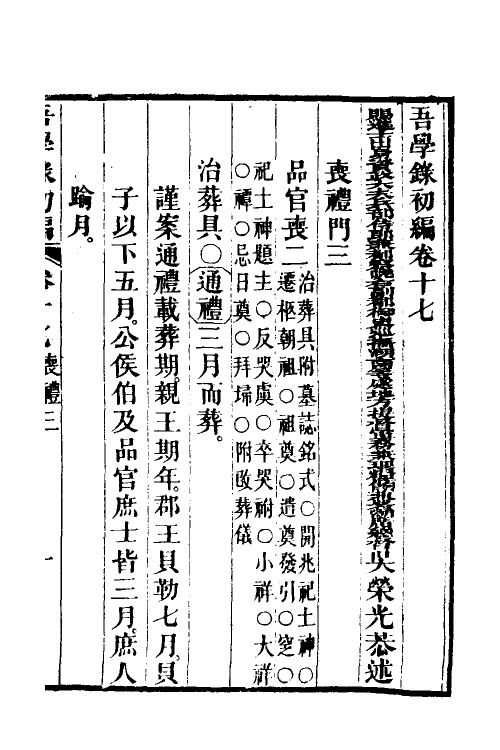 吾學錄初編卷十七
吳榮光恭述
喪禮門三
品官喪二治葬具附墓誌銘式○開兆祀土神○
遷柩朝祖○祖奠○遣奠發引○窆○
祀土神題主○反哭虞○卒哭祔○小祥○大祥
○禫○忌日奠○拜埽○附改葬儀
治葬具○通禮三月而葬。
謹案通禮載葬期。親王期年。郡王貝勒七月。貝
子以下五月。公侯伯及品官庶士皆三月。庶人
踰月。
吾學錄初編 卷十七喪禮三 一